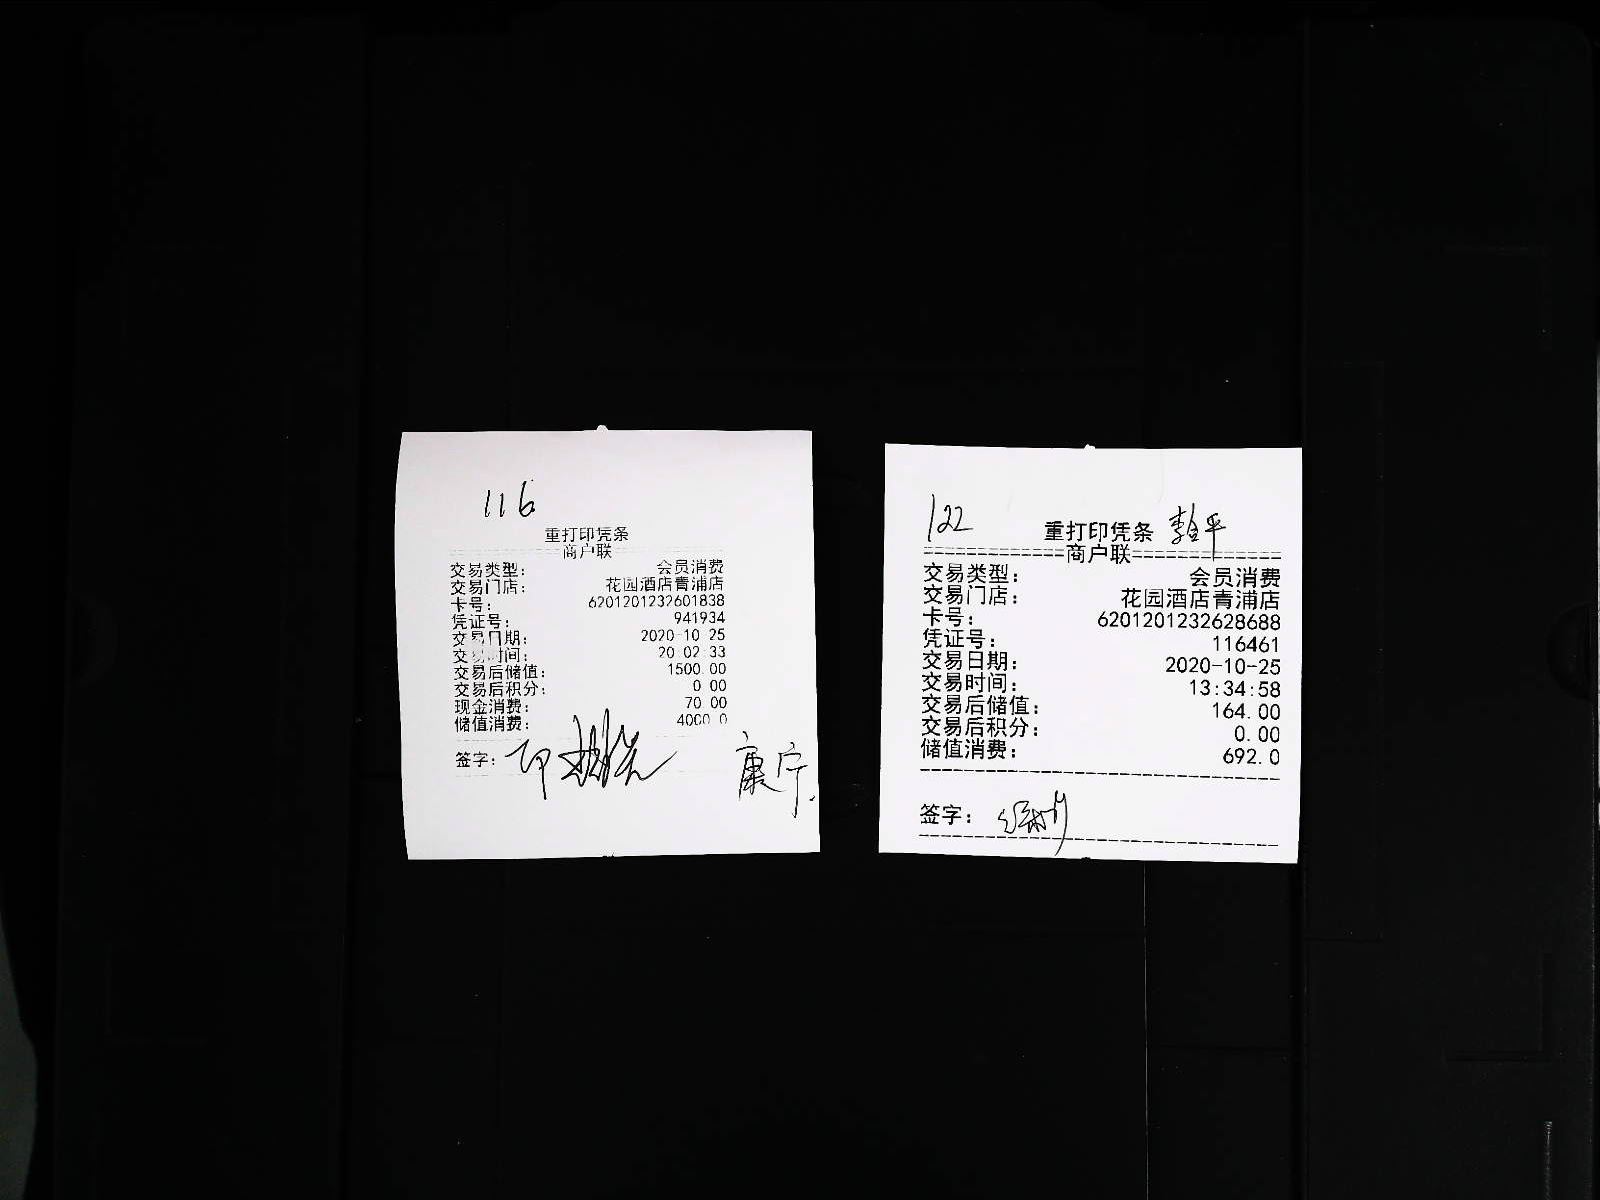 116
重打印凭条
商户联
交易类型: 会员消费
交易门店: 花园酒店青浦店
卡号: 6201201232601838
凭证号: 941934
交易日期: 2020-10-25
交易时间: 20:02:33
交易后储值: 1500.00
交易后积分: 0.00
现金消费: 70.00
储值消费: 4000.0
签字:
康宁
122
重打印凭条
商户联
交易类型: 会员消费
交易门店: 花园酒店青浦店
卡号: 6201201232628688
凭证号: 116461
交易日期: 2020-10-25
交易时间: 13:34:58
交易后储值: 164.00
交易后积分: 0.00
储值消费: 692.0
签字: